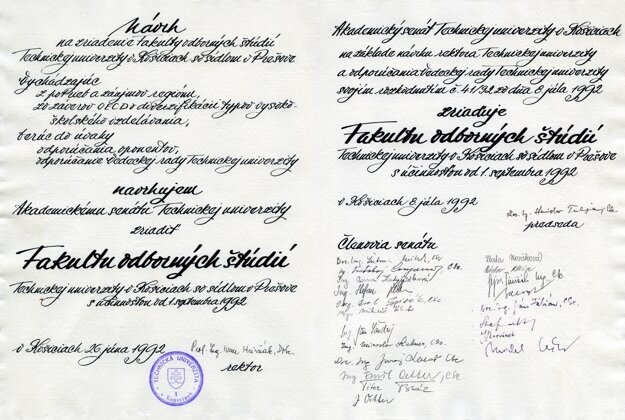 Návrh
na zriadenie Fakulty odborných štúdií
Technickej univerzity v Košiciach so sídlom v Prešove
Vychádzajúc
z potrieb a záujmov regiónu,
zo záverov OECD o diverzifikácii typov vysoko-
školského vzdelávania,
berúc do úvahy
odporúčania oponentov,
odporúčanie Vedeckej rady Technickej univerzity
navrhujem
Akademickému senátu Technickej univerzity
zriadiť
Fakultu odborných štúdií
Technickej univerzity v Košiciach so sídlom v Prešove
s účinnosťou od 1. septembra 1992
v Košiciach 26 júna 1992
Prof. Ing. Ivan
rektor
TECHNICKÁ UNIVERZITA
1
v Košiciach
Akademický senát Technickej univerzity v Košiciach
na základe návrhu rektora Technickej univerzity
a odporúčania Vedeckej rady Technickej univerzity
svojím rozhodnutím č. 41/92 zo dňa 8 júla 1992
zriaďuje
Fakultu odborných štúdií
Technickej univerzity v Košiciach so sídlom v Prešove
s účinnosťou od 1. septembra 1992
v Košiciach 8 júla 1992
predseda
Členovia senátu
Doc. Ing.
Ing. Štefan
Ing. Emil
Ing. Ján
Ing.
Doc. Ing. Juraj
Ing. Emil
J.